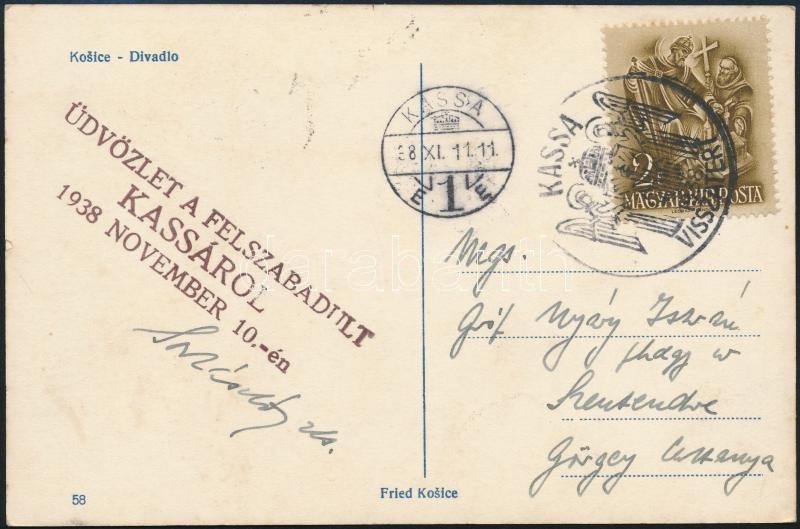 Košice - Divadlo
ÜDVÖZLET A FELSZABADULT
KASSÁRÓL
1938 NOVEMBER 10.-én
KASSA
38 XI. 11. 11.
1
KASSA VISSZATÉRT
2
MAGYAR KIR. POSTA
Ngs.
Gróf Nyáry István
őrhagy
Szentendre
Görgey
darabanth
58
Fried Košice